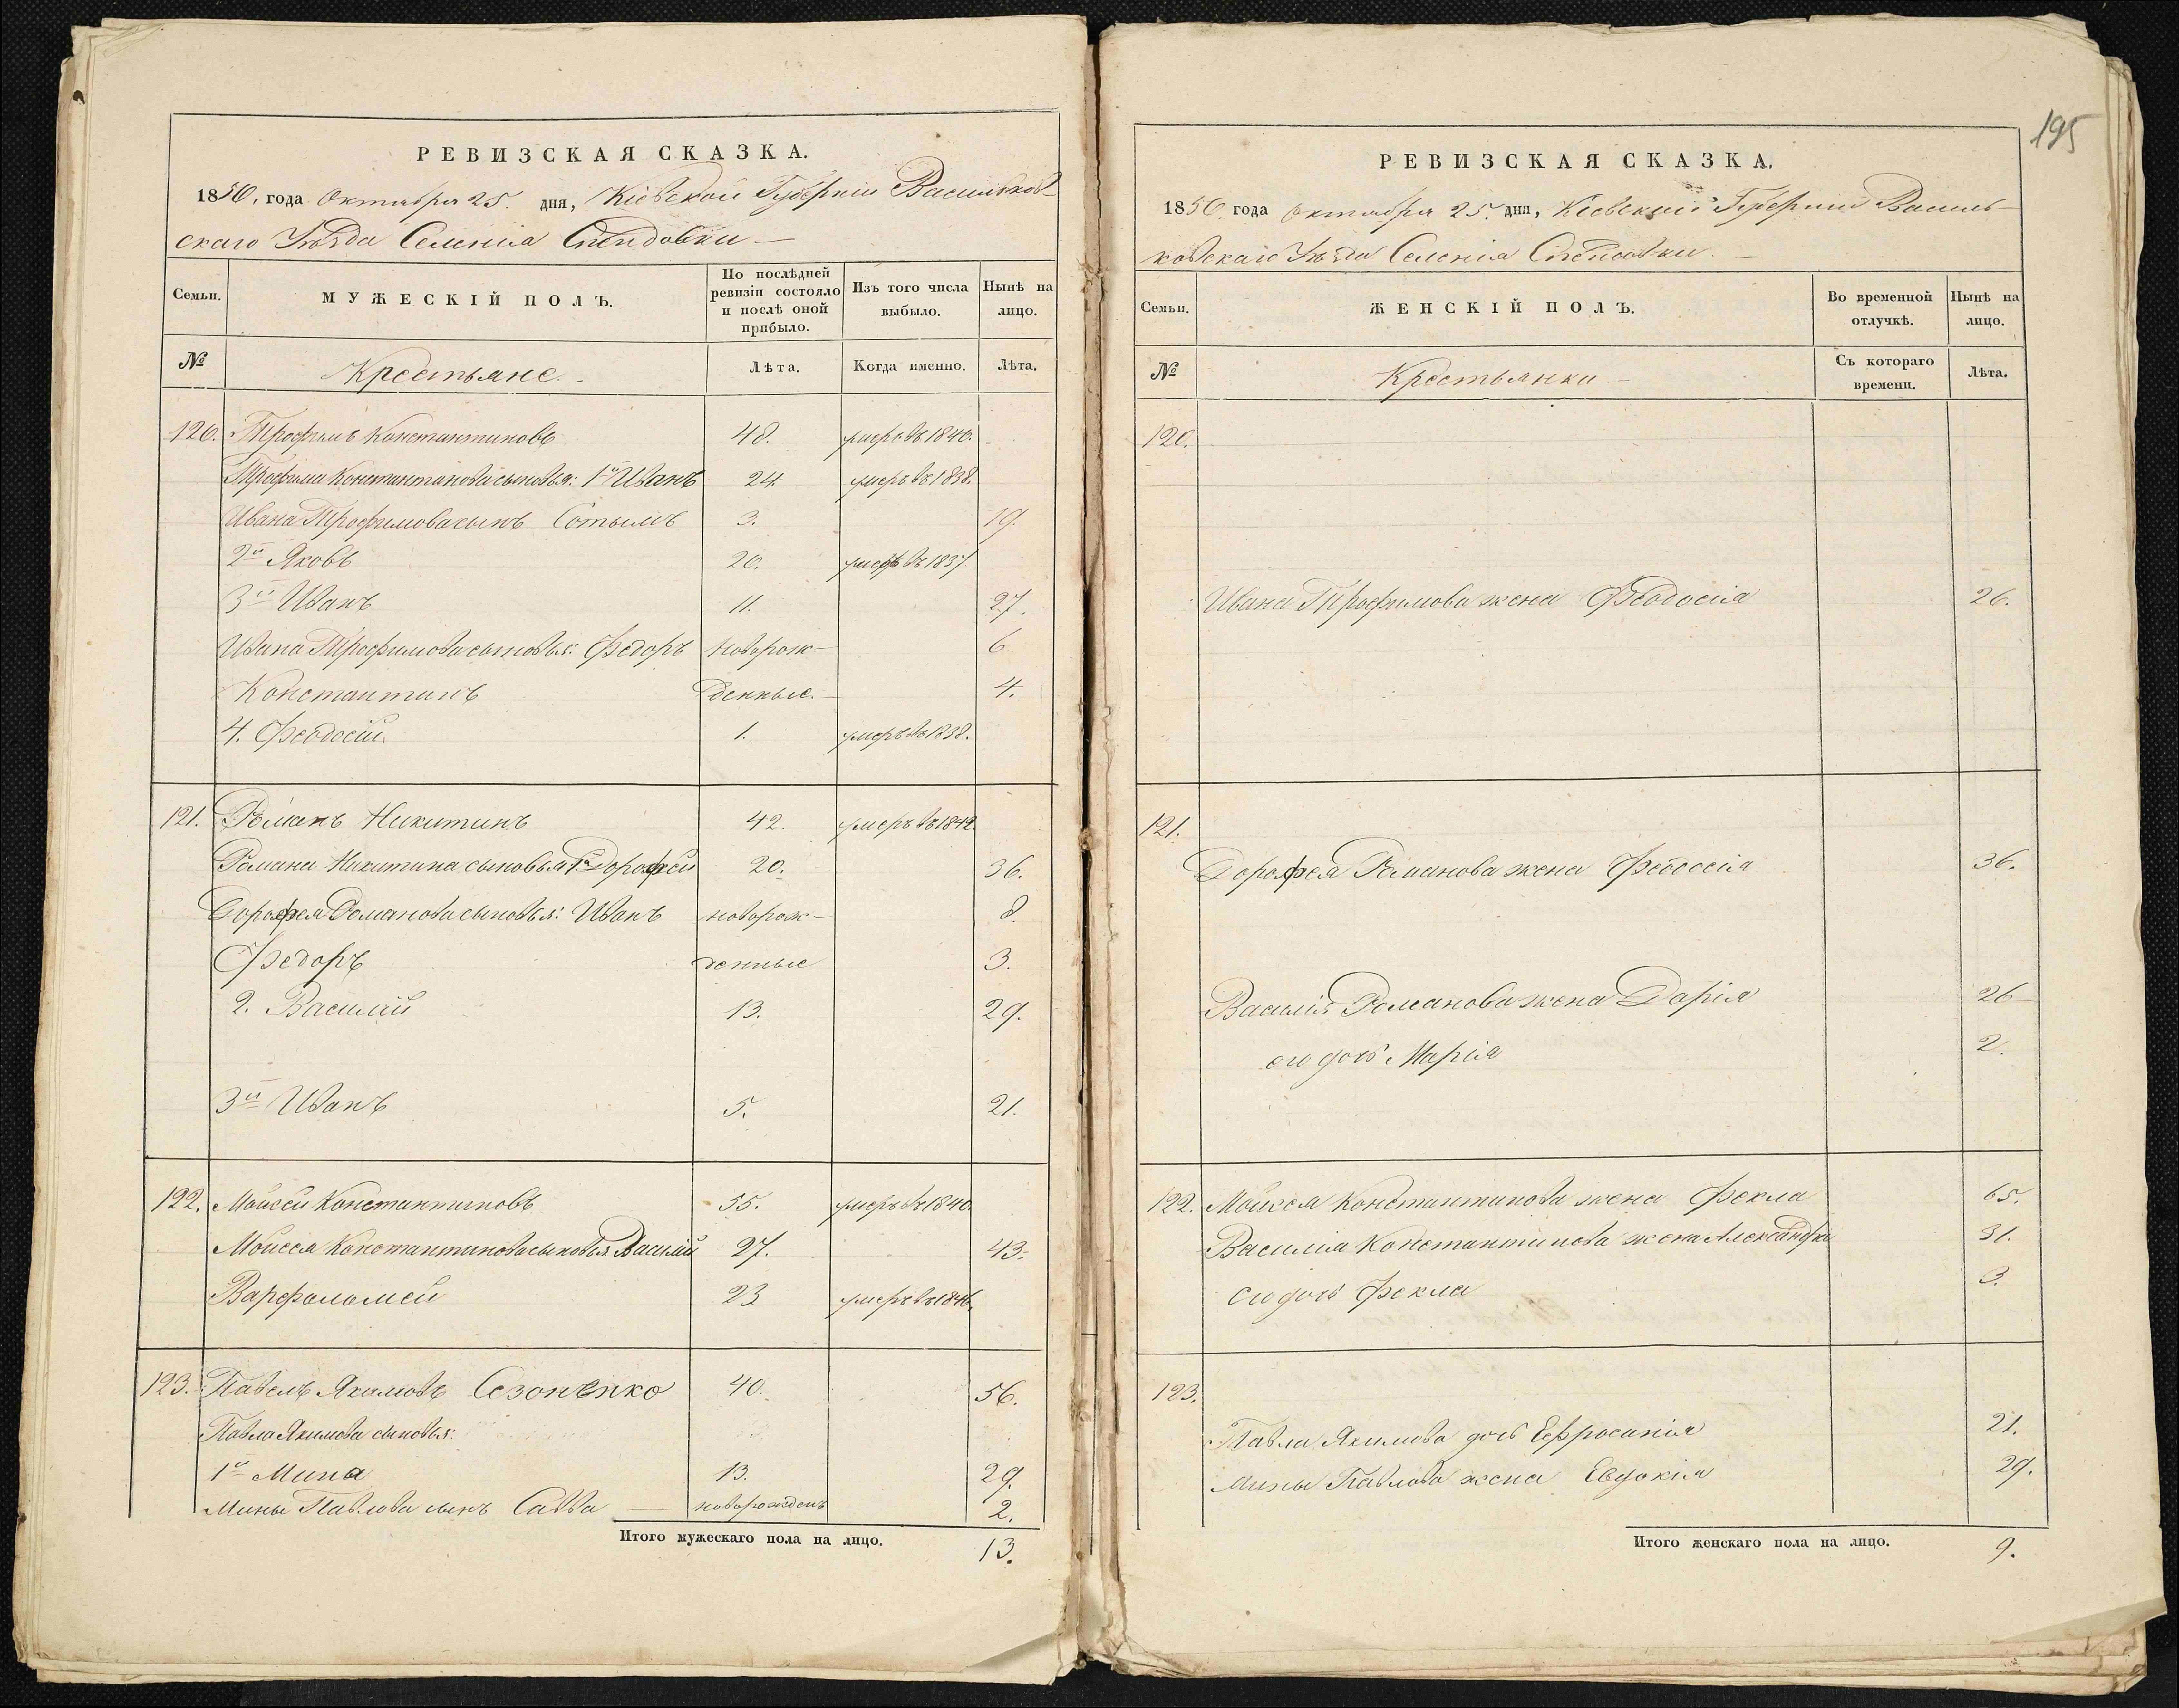 РЕВИЗСКАЯ СКАЗКА.
1850. года Октября 25. дня, Кіевской Губерніи Васильков-
скаго Уѣзда Селенія
Семьи.
МУЖЕСКІЙ ПОЛЪ.
По послѣдней ревизіи состояло и послѣ оной прибыло.
Изъ того числа выбыло.
Нынѣ на лицо.
№
Крестьяне.
Лѣта.
Когда именно.
Лѣта.
120. Трофимъ Константиновъ 48. умеръ въ 1840.
Трофима Константинова сыновья: 1й Иванъ 24 умеръ въ 1838.
Ивана Трофимова сынъ 3. 19.
2й Яковъ 20. умеръ въ 1837.
3й Иванъ 11. 27.
Ивана Трофимова сыновья: Федоръ новорож- 6
Константинъ денные. 4.
4. Феодосій 1. умеръ въ 1838.
121. Романъ Никитинъ 42. умеръ въ 1842.
Романа Никитина сыновья 1й Дорофей 20. 36.
Дорофея Романова сыновья: Иванъ новорож- 8.
Федоръ денные 3.
2. Василій 13. 29.
3й Иванъ 5. 21.
122. Мойсей Константиновъ 55. умеръ въ 1840.
Мойсея Константинова сыновья Василій 27. 43.
Варфоломей 23 умеръ въ 1846.
123. Павелъ Якимовъ Сезоненко 40. 56.
Павла Якимова сыновья:
1й Мина 13. 29.
Мины Павлова сынъ Савва — новорожденъ 2.
Итого мужескаго пола на лицо. 13.
195
РЕВИЗСКАЯ СКАЗКА.
1850. года Октября 25. дня, Кіевской Губерніи Василь-
ковскаго Уѣзда Селенія
Семьи.
ЖЕНСКІЙ ПОЛЪ.
Во временной отлучкѣ.
Нынѣ на лицо.
№
Крестьянки
Съ котораго времени.
Лѣта.
120.
Ивана Трофимова жена Феодосія 26.
121.
Дорофея Романова жена Феодосія 36.
Василія Романова жена Дарія 26
его дочь Марія 2.
122. Мойсея Константинова жена Фекла 65.
Василія Константинова жена Александра 31.
его дочь Фекла 3.
123.
Павла Якимова дочь Ефросинія 21.
Мины Павлова жена Евдокія 29.
Итого женскаго пола на лицо. 9.